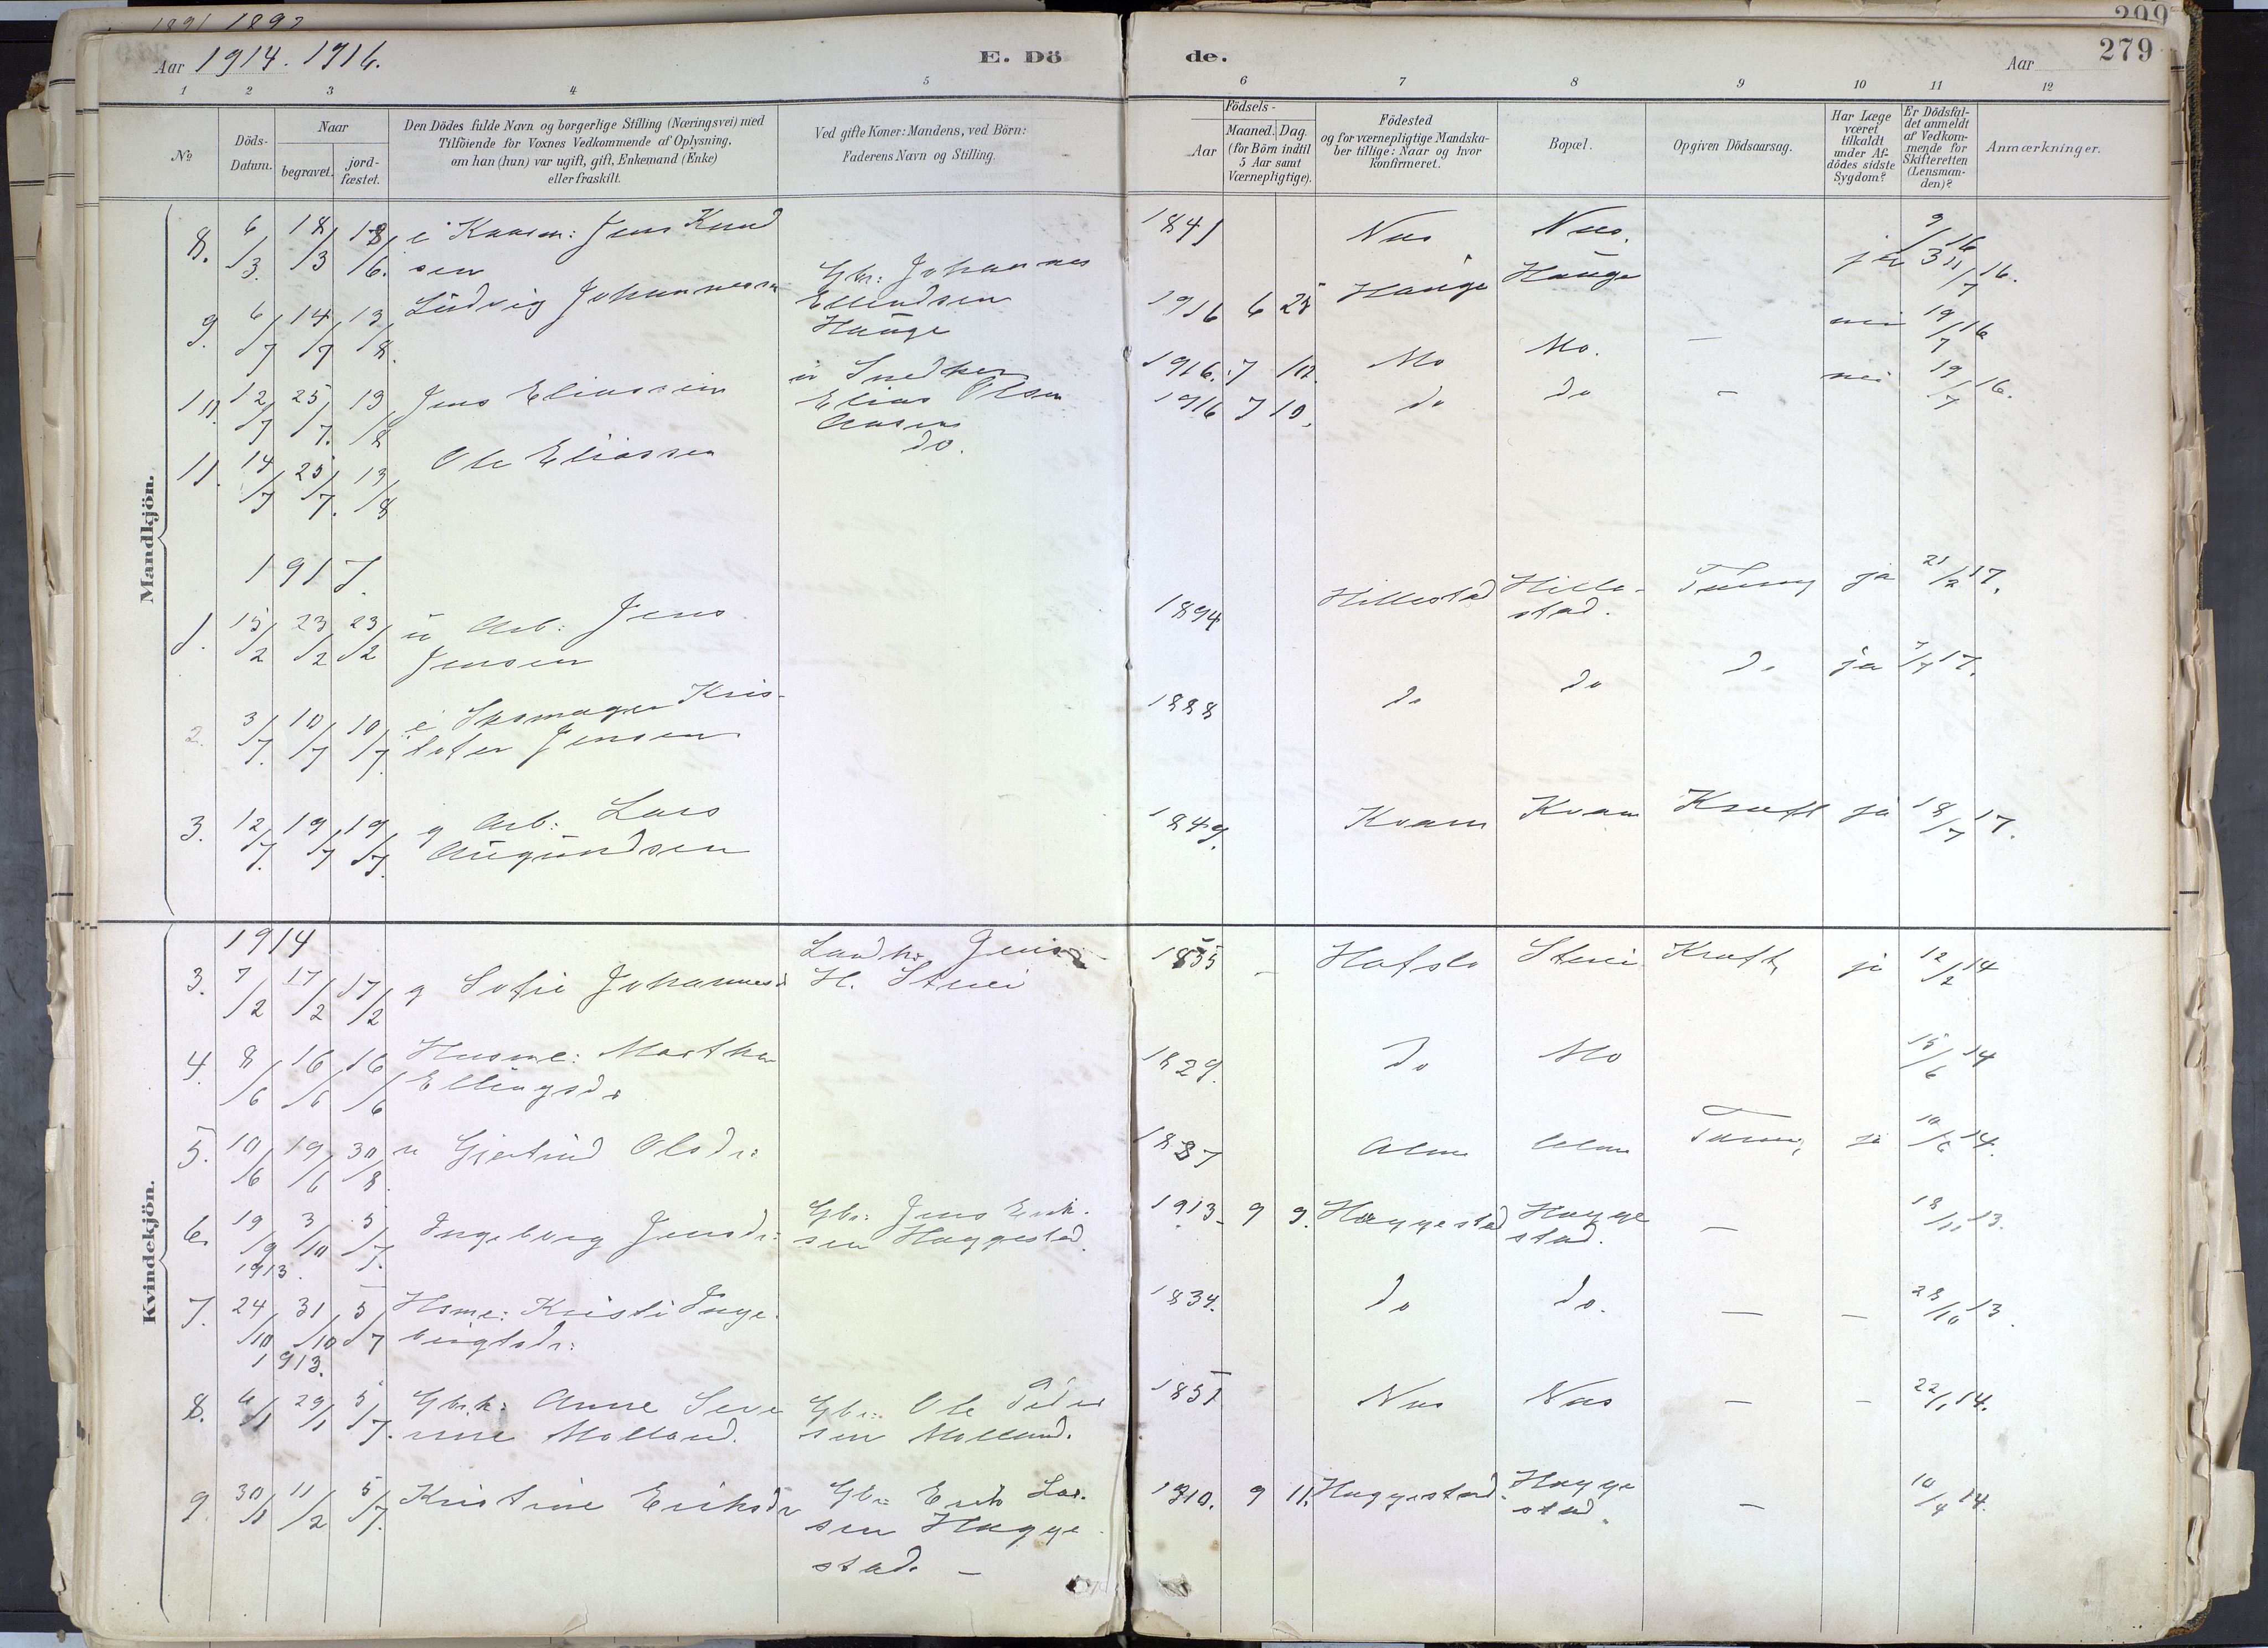 1891 1892
299
Aar 1914. 1916.
E. Dö
de.
Aar
279
1 2 3 4 5 6 7 8 9 10 11 12
No
Döds-
Datum.
Naar
begravet.
jord-
fæstet.
Den Dödes fulde Navn og borgerlige Stilling (Næringsvei) med
Tilföiende for Voxnes Vedkommende af Oplysning,
om han (hun) var ugift, gift, Enkemand (Enke)
eller fraskilt.
Ved gifte Koner: Mandens, ved Börn:
Faderens Navn og Stilling.
Födsels-
Aar
Maaned. Dag.
(for Börn indtil
5 Aar samt
Værnepligtige).
Födested
og for værnepligtige Mandska-
ber tillige: Naar og hvor
konfirmeret.
Bopæl.
Opgiven Dödsaarsag.
Har Læge
været
tilkaldt
under Af-
dödes sidste
Sygdom?
Er Dödsfal-
det anmeldt
af Vedkom-
mende for
Skifteretten
(Lensman-
den)?
Anmærkninger.
Mandkjön.
8. 6/3 18/3 18/6. e Kaarm: Jens Knud
sen
1841 Nes Nes. ja 9/3 16
9. 6/7 14/7 13/8. Ludvig Johannessen
Gbr: Johannes
Ellendsen
Hauge
1916 6 25 Hauge Hauge 11/7 16.
10. 12/7 25/7. 13/8 Jens Eliassen
u Snedker
Elias Olsen
Aasen
1916. 7 10. Mo Mo. — nei 19/7 16
11. 14/7 25/7. 13/8 Ole Eliassen do.
1916 7 10. do do — nei 19/7 16.
1917
1. 15/2 23/2 23/2 u Arb: Jens
Jensen
1894 Hillestad Hille-
stad. Tuberk ja 21/2 17.
2. 3/7. 10/7 10/7. e Skomager Kris-
tofer Jensen
1888 do do do ja 7/7 17.
3. 12/7. 19/7 19/7. g Arb: Lars
Augundsen
1849. Kvam Kvam Kræft ja 18/7 17.
Kvindekjön.
1914
3. 7/2 17/2 17/2 g Sofie Johannesd
Landh: Jens
H. Steiei
1855 — Hafslo Kræft ja 12/2 14
4. 8/6 16/6 16/6 Husme: Martha
Ellingsdr
1829. do Mo 15/6 14
5. 10/6 19/6 30/8. u Gjertrud Olsdr:
1887 Alme Alme ja 10/6 14.
6. 19/9 3/10 5/7. Ingeborg Jensdr:
1913.
Gbr: Jens Erik-
sen Haggestad.
1913. 9 9. Haggestad Hagge
stad. — 18/10 13.
7. 24/10 31/10 5/7 Hsme: Kristi Inge-
brigtsdr:
1913.
1834. do do. — — 28/10 13.
8. 6/1 29/1 5/7. Gbrk: Anne Seve
rine Molland.
Gbr: Ole Peder
sen Molland.
1851 Nes Nes — — 22/1 14.
9. 30/1 11/2 5/7. Kristine Eriksdr
Gbr: Erik Lar-
sen Hagge
stad. —
1910. 9 11. Haggestad. Hagge
stad. — 10/4 14.